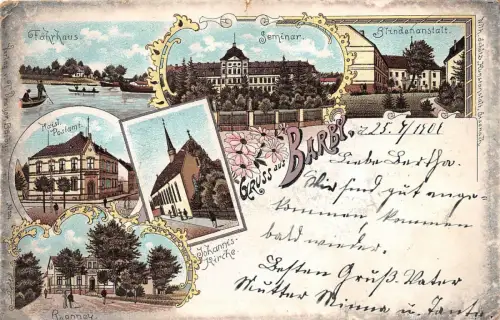 Fährhaus.
Seminar.
Blindenanstalt.
Kaisl. Postamt.
Johannes-
Kirche.
Gruss aus
BARBY.
Liebe Bertha.
Wir sind gut ange-
kommen, kommen
bald wieder.
Besten Gruß. Vater
Mutter Minna u. Tante